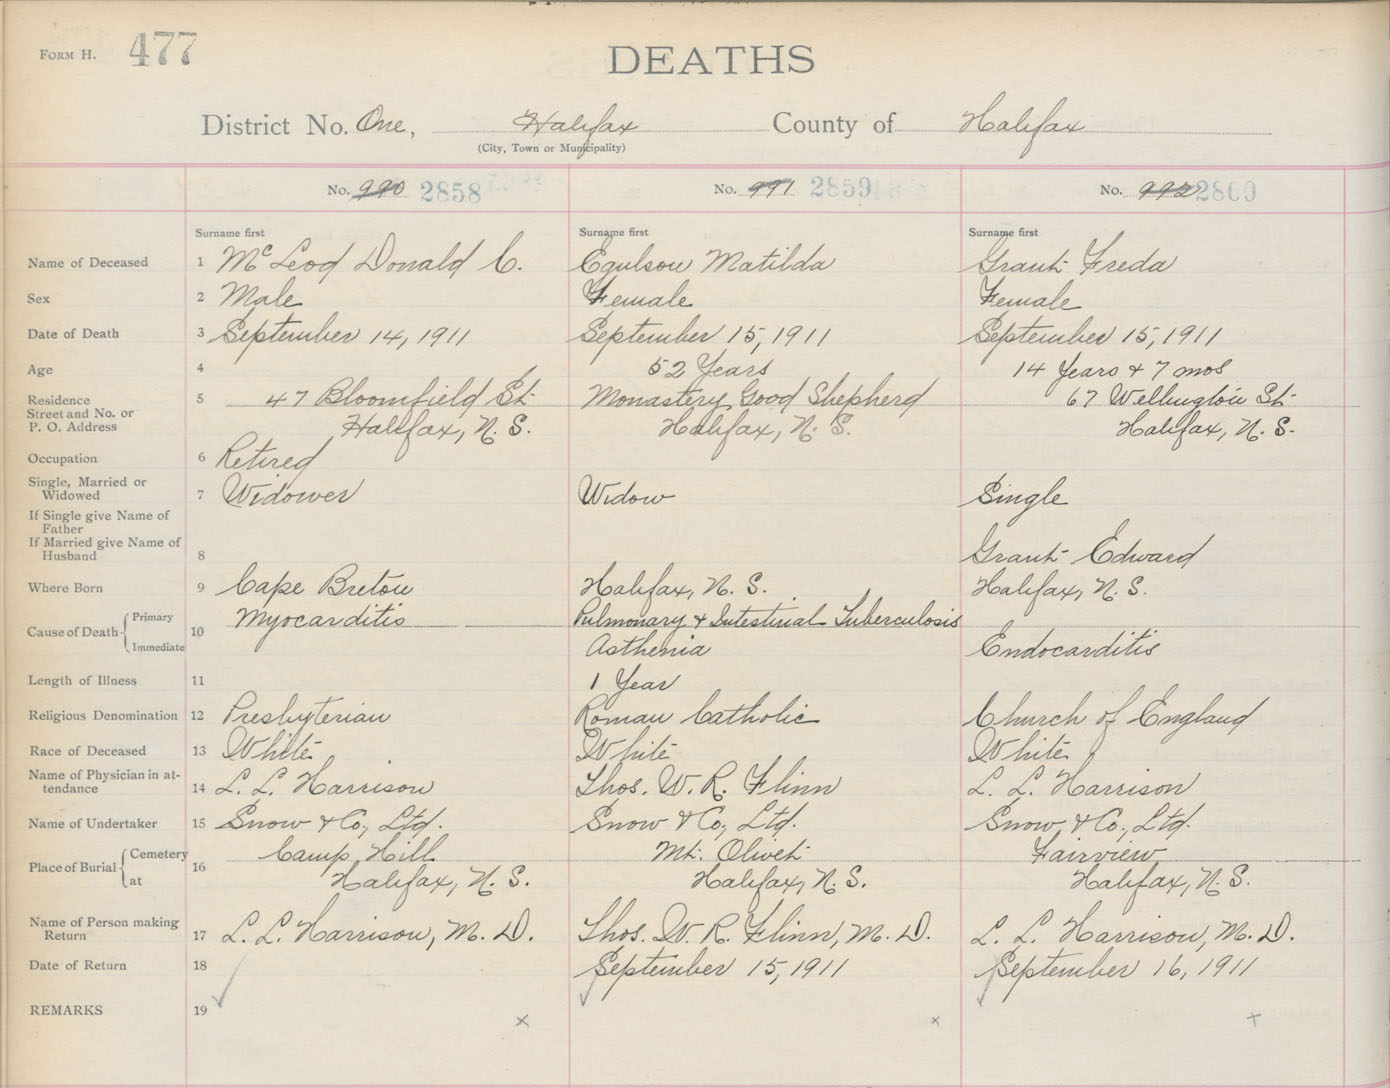 FORM H. 477
DEATHS
District No. One, Halifax County of Halifax
(City, Town or Municipality)
No. 990 2858 No. 991 2859 No. 992 2860
Surname first Surname first Surname first
Name of Deceased 1 McLeod Donald C. Egulson Matilda Grant Freda
Sex 2 Male Female Female
Date of Death 3 September 14, 1911 September 15, 1911 September 15, 1911
Age 4 52 Years 14 Years & 7 mos
Residence 5 47 Bloomfield St. Monastery Good Shepherd 67 Wellington St.
Street and No. or
P. O. Address Halifax, N. S. Halifax, N. S. Halifax, N. S.
Occupation 6 Retired
Single, Married or
Widowed 7 Widower Widow Single
If Single give Name of
Father
If Married give Name of
Husband 8 Grant Edward
Where Born 9 Cape Breton Halifax, N. S. Halifax, N. S.
Cause of Death 10 Primary Myocarditis Pulmonary & Intestinal Tuberculosis
Immediate Asthenia Endocarditis
Length of Illness 11 1 Year
Religious Denomination 12 Presbyterian Roman Catholic Church of England
Race of Deceased 13 White White White
Name of Physician in at-
tendance 14 L. L. Harrison Thos. W. R. Flinn L. L. Harrison
Name of Undertaker 15 Snow & Co., Ltd. Snow & Co., Ltd. Snow & Co., Ltd.
Place of Burial 16 Cemetery Camp Hill Mt. Olivet Fairview
at Halifax, N. S. Halifax, N. S. Halifax, N. S.
Name of Person making
Return 17 L. L. Harrison, M. D. Thos. W. R. Flinn, M. D. L. L. Harrison, M. D.
Date of Return 18 September 15, 1911 September 16, 1911
REMARKS 19